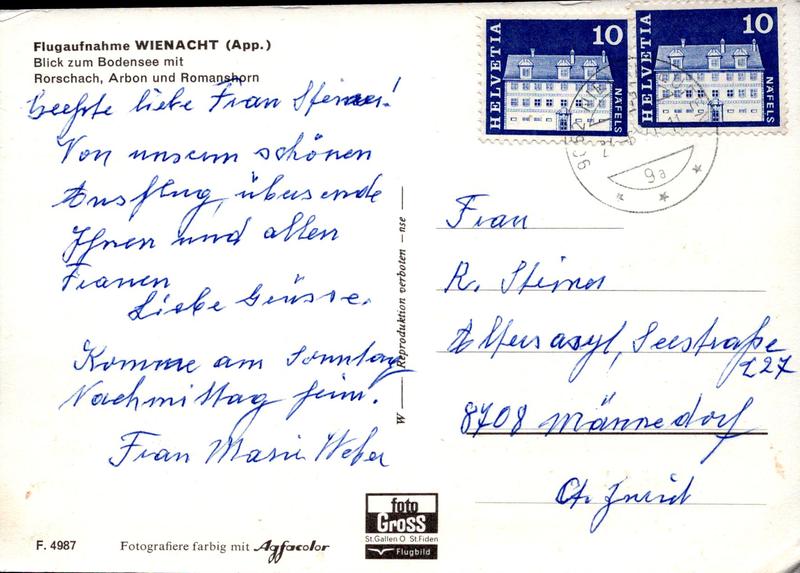 Flugaufnahme WIENACHT (App.)
Blick zum Bodensee mit
Rorschach, Arbon und Romanshorn
Geehrte liebe Frau Steiner!
Von unserm schönen
Ausflug, übersende
Ihnen und allen
Frauen
Liebe Grüsse.
Komme am Sonntag
Nachmittag heim.
Frau Marie Weber
F. 4987
Fotografiere farbig mit Agfacolor
W — Reproduktion verboten – nse —
foto
Gross
St.Gallen O St.Fiden
Flugbild
HELVETIA 10 NÄFELS
HELVETIA 10 NÄFELS
9a
Frau
R. Steiner
Altersasyl, Seestraße
127
8708 Männedorf
Ct. Zürich